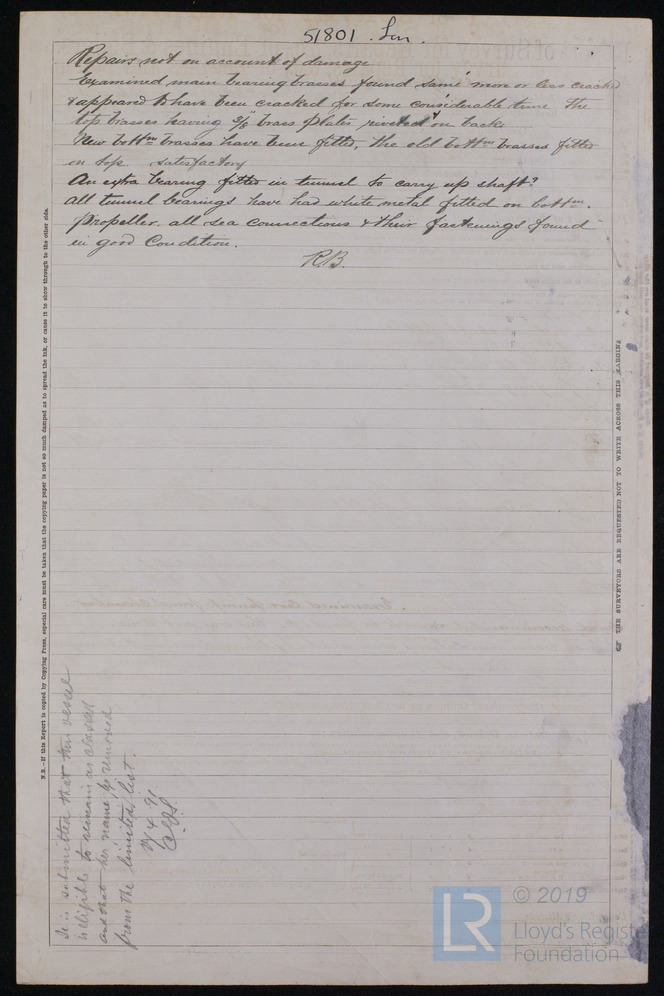 51801 Lon.
Repairs not on account of damage
Examined main bearing brasses found same more or less cracked
& appeared to have been cracked for some considerable time the
top brasses having 3/8" brass plates riveted on backs
New bottm brasses have been fitted, the old bottm brasses fitted
on top. satisfactory
An extra bearing fitted in tunnel to carry up shaft.
All tunnel bearings have had white metal fitted on bottm.
Propeller, all sea connections & their fastenings found
in good Condition.
R.B.
N.B.—If this Report is copied by Copying Press, especial care must be taken that the copying paper is not so much damped as to spread the ink, or cause it to show through to the other side.
THE SURVEYORS ARE REQUESTED NOT TO WRITE ACROSS THIS MARGIN
It is submitted that this vessel
is eligible to remain as classed
and that her name be removed
from the limited list.
LR
© 2019
Lloyd's Register
Foundation